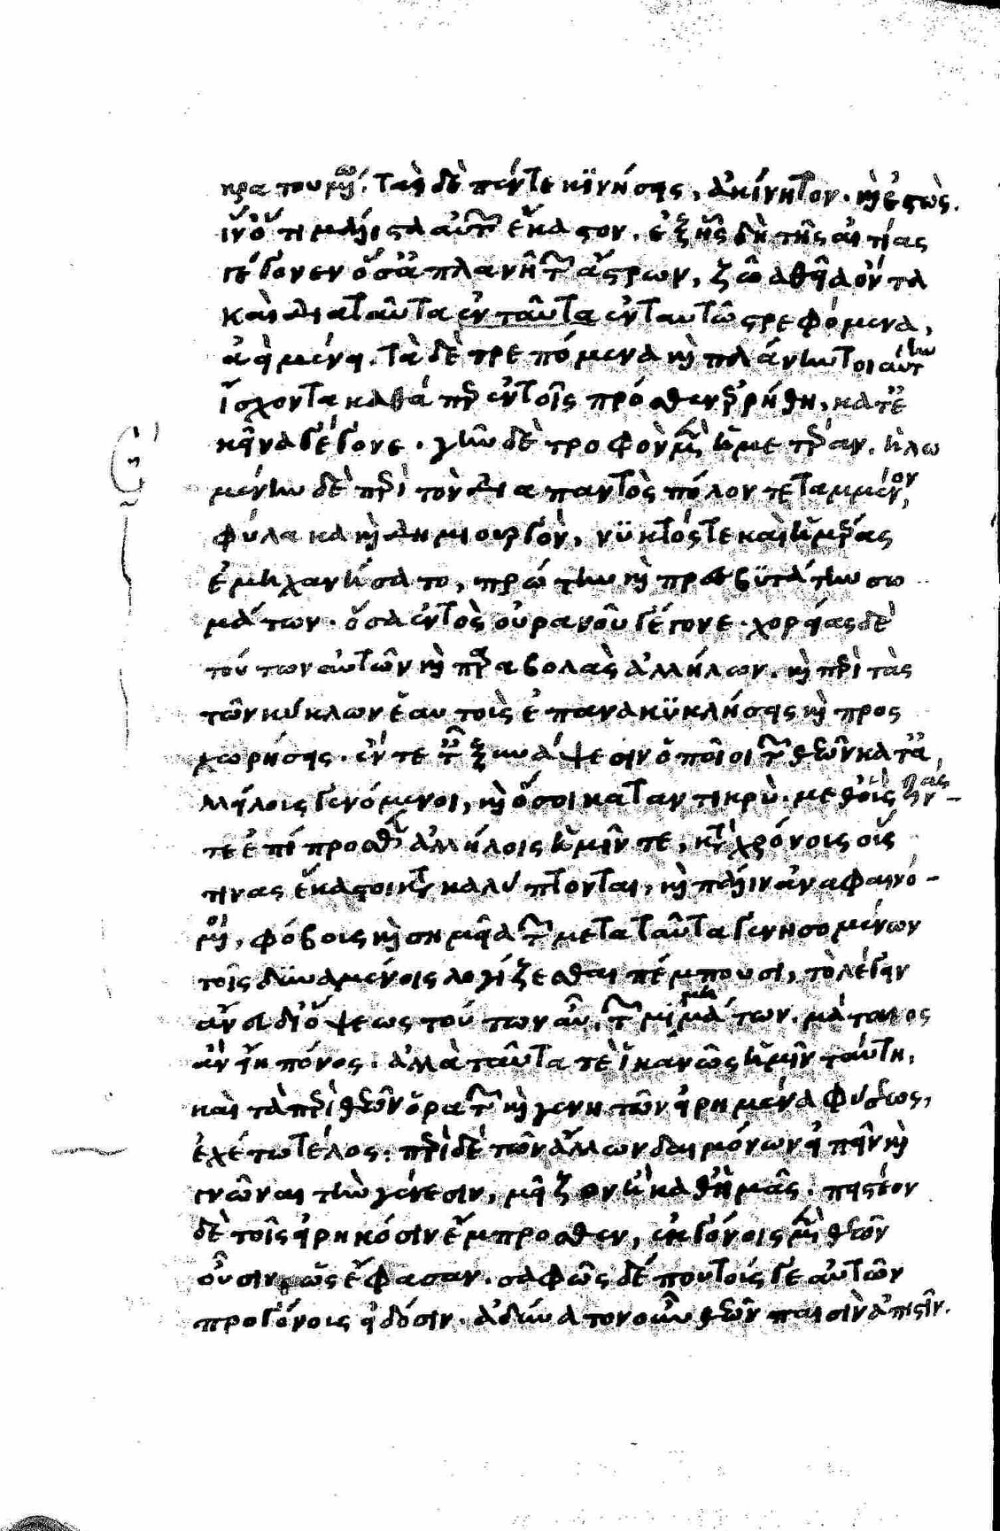 κρατουμένω. τὰς δὲ πέντε κινήσεις, ἀκίνητον. καὶ ἑστὼς.
ἵν' ὅτι μάλιστα αὐτῶν ἕκαστον. ἐξ ἧς δὴ τῆς αἰτίας
γέγονεν ὅσα ἀπλανῆ τῶν ἄστρων, ζῶα θεῖα ὄντα
καὶ διαταῦτα ἐν ταῦτα ἐν ταυτῶ στρεφόμενα,
ἀεὶ μένει. τὰ δὲ τρεπόμενα καὶ πλάνην τοιαύτην
ἴσχοντα καθάπερ ἐν τοῖς πρόσθεν ἐρρήθη, κατ'ἐ
κεῖνα γέγονε. γῆν δὲ τροφὸν μὲν ἡμετέραν. ἡλω
μένην δὲ περὶ τὸν διαπαντὸς πόλον τεταμμένον,
φύλακα καὶ δημιουργὸν, νϋκτός τε καὶ ἡμέρας
ἐμηχανήσατο, πρώτην καὶ πρεσβϋτάτην σω
μάτων. ὅσα ἐντὸς οὐρανοῦ γέγονε. χορείας δὲ
τούτων αὐτῶν καὶ παραβολὰς ἀλλήλων. καὶ περὶ τὰς
τῶν κύκλων ἑαυτοὺς ἐπανακϋκλήσεις καὶ προς
χωρήσεις. ἔν τε ταῖς ξυνάψεσιν ὁποῖοι τῶν θεῶν κατα
λλήλοις γενόμενοι, καὶ ὅσοι καταντικρὺ. μεθ' οὕς τινας
τε ἐπίπροσθεν ἀλλήλοις ἡμῖν τε, κατὰ χρόνοις οὕς
τινας ἕκαστοι κατακαλύπτονται, καὶ πάλιν ἀναφαινό-
μενοι, φόβοις καὶ σημεῖα τῶν μετα ταῦτα γενησομένων
τοῖς δυναμένοις λογίζεσθαι πέμπουσι, τὸ λέγειν
ἄνευ διόψεως τούτων αὖ τῶν μιμημάτων. μάταιος
ἂν εἴη πόνος. ἀλλὰ ταῦτα τὲ ἱκανῶς ἡμῖν ταύτη,
καὶ τὰ περὶ θεῶν ὁρατῶν καὶ γενητῶν εἰρημένα φύσεως,
ἐχέτω τέλος. περὶ δὲ τῶν ἄλλων δαιμόνων εἰπεῖν καὶ
γνῶναι τὴν γένεσιν, μεῖζον ἢ καθ' ἡμᾶς. πειστέον
δὲ τοῖς εἰρηκόσιν ἔμπροσθεν, ἐκγόνοις μὲν θεῶν
οὖσιν, ὡς ἔφασαν. σαφῶς δέ που τοὺς γε αὐτῶν
προγόνοις εἰδόσιν. ἀδύνατον οὖν θεῶν παισὶν ἀπιστεῖν.